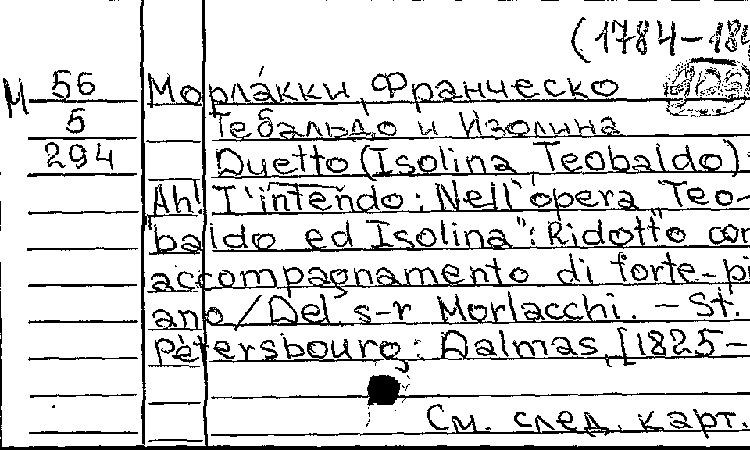 (1784-184
М 56 Морлáкки, Франческо
5 Тебальдо и Изолина
294 Duetto (Isolina, Teobaldo):
Ah! T'intendo: Nell'opera "Teo-
baldo ed Isolina": Ridotto con
accompagnamento di forte-pi
ano/Del s-r Morlacchi. - St.
Pétersbourg: Dalmas, [1825-
См. след. карт.